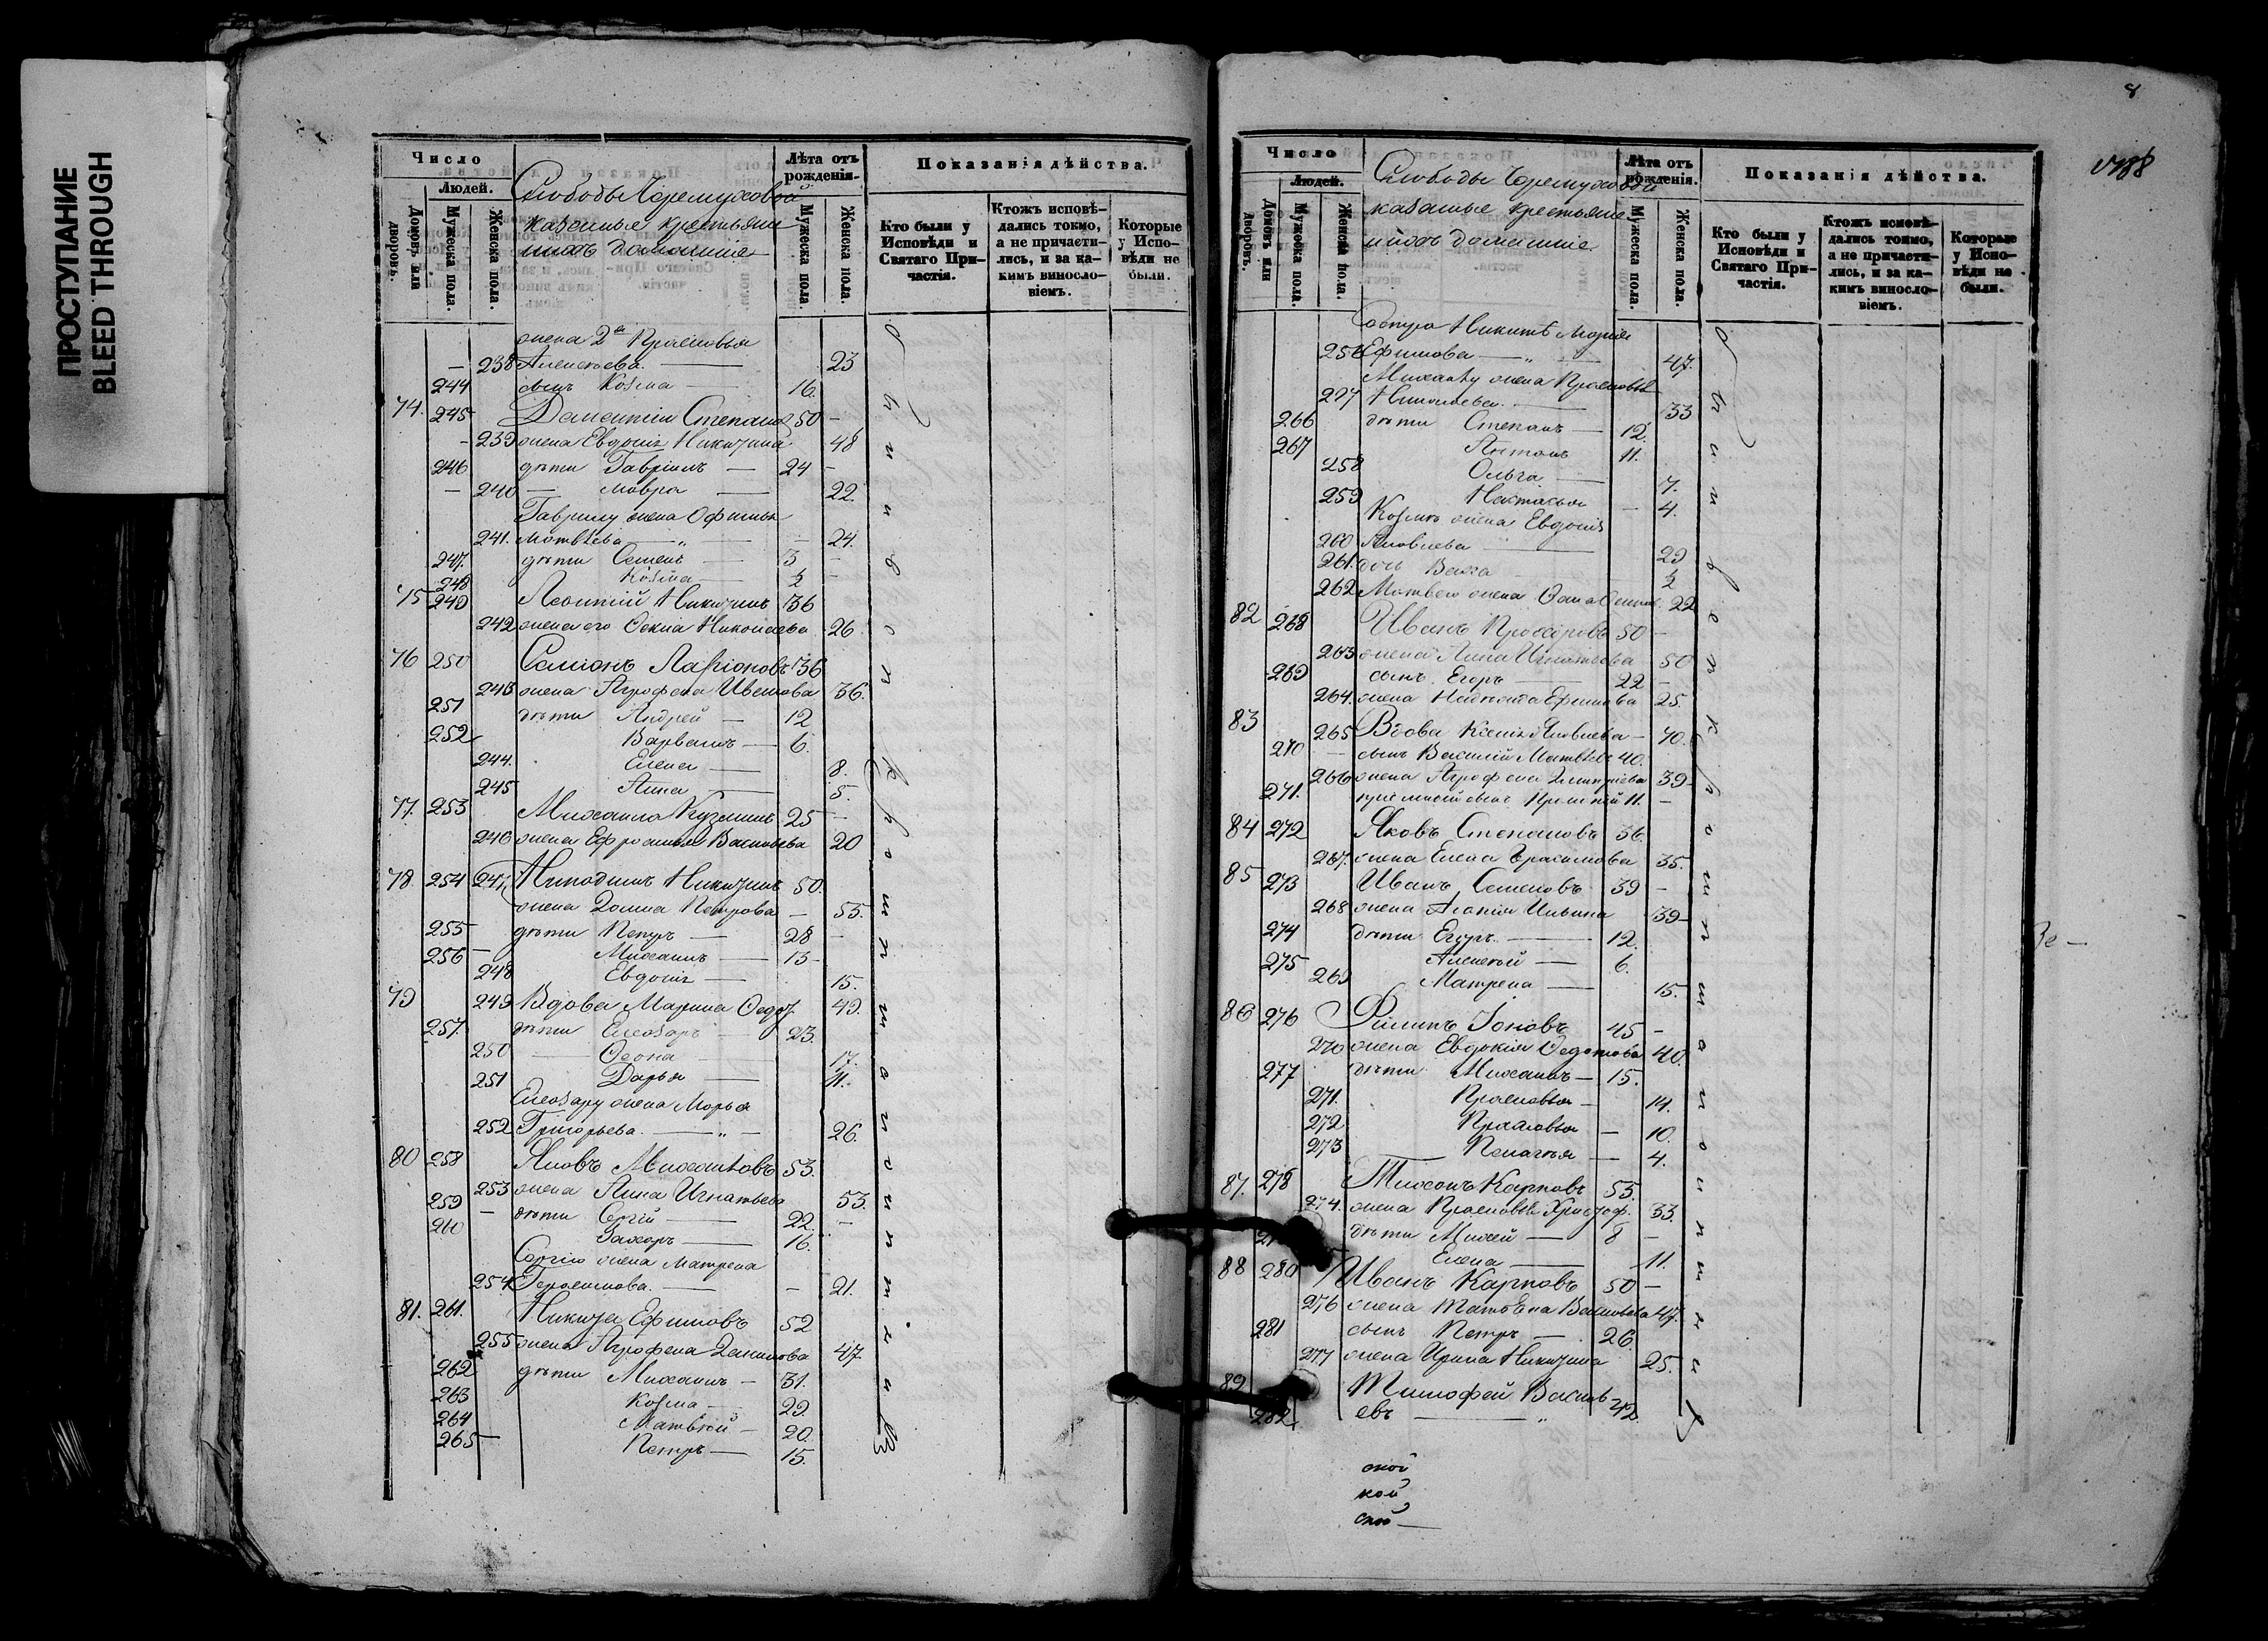 ПРОСТУПАНИЕ
BLEED THROUGH
Число
Людей.
Домовъ или дворовъ.
Мужеска пола.
Женска пола.
Слободы Черемуховой
казенные крестьяне
и ихъ домашніе
Лѣта отъ рожденія.
Мужеска пола.
Женска пола.
Показанія дѣйства.
Кто были у Исповѣди и Святаго Причастія.
Ктожъ исповѣдались токмо, а не причастились, и за какимъ винословіемъ.
Которые у Исповѣди не были.
жена 2я Прасковья
— 238 Алексѣева — 23
244 сынъ Козма — 16.
74. 245 Дементій Степановъ 50 —
— 239 жена Евдокія Никитина 48
246 дѣти Гавріилъ — 24 —
— 240 — Мавра — 22.
Гаврилу жена Офимья
241. Матвѣева — „ — 24.
247. дѣти Семенъ — 3 —
248 Козма — ½ —
75 249 Леонтій Никитинъ 36
242 жена его Ѳекла Николаева 26
76 250 Семіонъ Ларіоновъ 36
243 жена Агрофена Ивanова 36.
251 дѣти Андрей — 12
252 Варвамъ — 6.
244. Елена — 8.
245 Анна — 5.
77. 253 Михаила Кузминъ 25 —
246 жена Ефросинья Васильева 20
78. 254 247 Никодимъ Никитинъ 50.
жена Домна Петрова — 53.
255 дѣти Петръ — 28 —
256 — Михаилъ — 13 —
248 Евдокія — 15.
79 249 Вдова Марина Ѳедот. 49.
257. дѣти Елеозаръ — 23.
250 — 17.
251 Дарья — 11.
Елеозару жена Марья
252 Григорьева. — „ — 26.
80 258 Яковъ Михаиловъ 53.
253 жена Анна Игнатьева 53.
259 — дѣти Сергій — 22. —
260 Захаръ — 16.
Сергію жена Матрена
254 Герасимова. — — 21.
81. 261. Никита Ефимовъ 52
255 жена Агрофена Данилова 47.
262 дѣти Михаилъ — 31.
263 Козма — 29.
264 Матвѣй — 20.
265 — Петръ — 15.
8
788
Число
Людей.
Домовъ или дворовъ.
Мужеска пола.
Женска пола.
Слободы Черемуховой
казенные крестьяне
и ихъ домашніе
Лѣта отъ рожденія.
Мужеска пола.
Женска пола.
Показанія дѣйства.
Кто были у Исповѣди и Святаго Причастія.
Ктожъ исповѣдались токмо, а не причастились, и за какимъ винословіемъ.
Которые у Исповѣди не были.
сестра Никитѣ Марія
256 Ефимова — „ — 47.
Михаилу жена Прасковья
257 Николаева. — 33
266 дѣти Степанъ — 12.
267 Антонъ 11.
258 Ольга — 7.
259 Настасья — 4.
Козмѣ жена Евдокія
260 Яковлева — 29
261. дочь ½
262 Матвею жена 22
82 268 Иванъ Прохоровъ 50 —
263 жена Анна Игнатьева 50
269 сынъ Егоръ — 22 —
264. жена Ефимова 25.
83 265 Вдова Ксенія Яковлева — 70.
270 — сынъ Василій Матвѣевъ 40.
266 жена Агрофена Дмитріева 39 —
271. пріемный сынъ 11. —
84 272 Яковъ Степановъ 36.
267. жена Елена Герасимова 35.
85 273 Иванъ Семеновъ 39 —
268 жена Агапія Ильина 39 —
274 дѣти Егоръ. — 12.
275 Алексѣй — 6.
269 Матрена — 15.
86 276 Филипъ Іоновъ 45 —
270 жена Евдокія Ѳедотова 40.
277 дѣти Михаилъ — 15.
271. Прасковья — 14.
272 Прасковья — 10.
273 Пелагея — 4.
87. 278 Тихонъ Карповъ 55.
274. жена Прасковья Христоф. 33.
дѣти Михей — 8 —
Елена — 11.
88 280 Иванъ Карповъ 50 —
276 жена Татьяна Васильева 47.
281 сынъ Петръ — 26.
277 жена Ирина Никитина 25.
89 Тимофей Василь
282. евъ — „ 42.
ской
кой
ской —